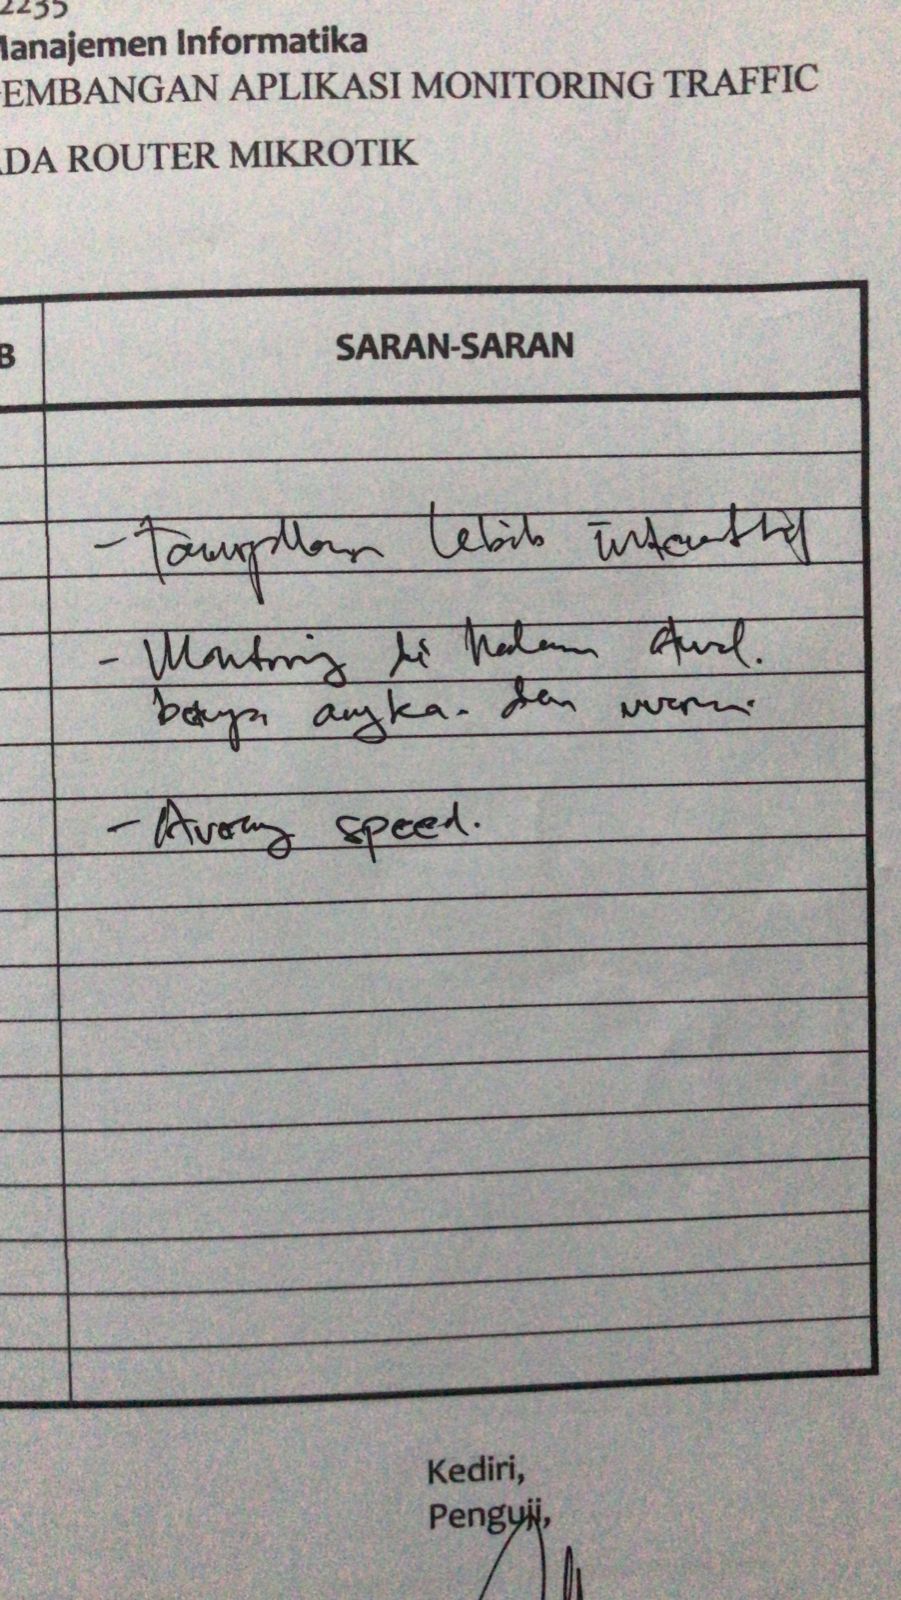 2235
Manajemen Informatika
EMBANGAN APLIKASI MONITORING TRAFFIC
ADA ROUTER MIKROTIK
B
SARAN-SARAN
- Tampilan lebih interaktif
- Monitoring di halam awal.
angka. dan
- speed.
Kediri,
Penguji,